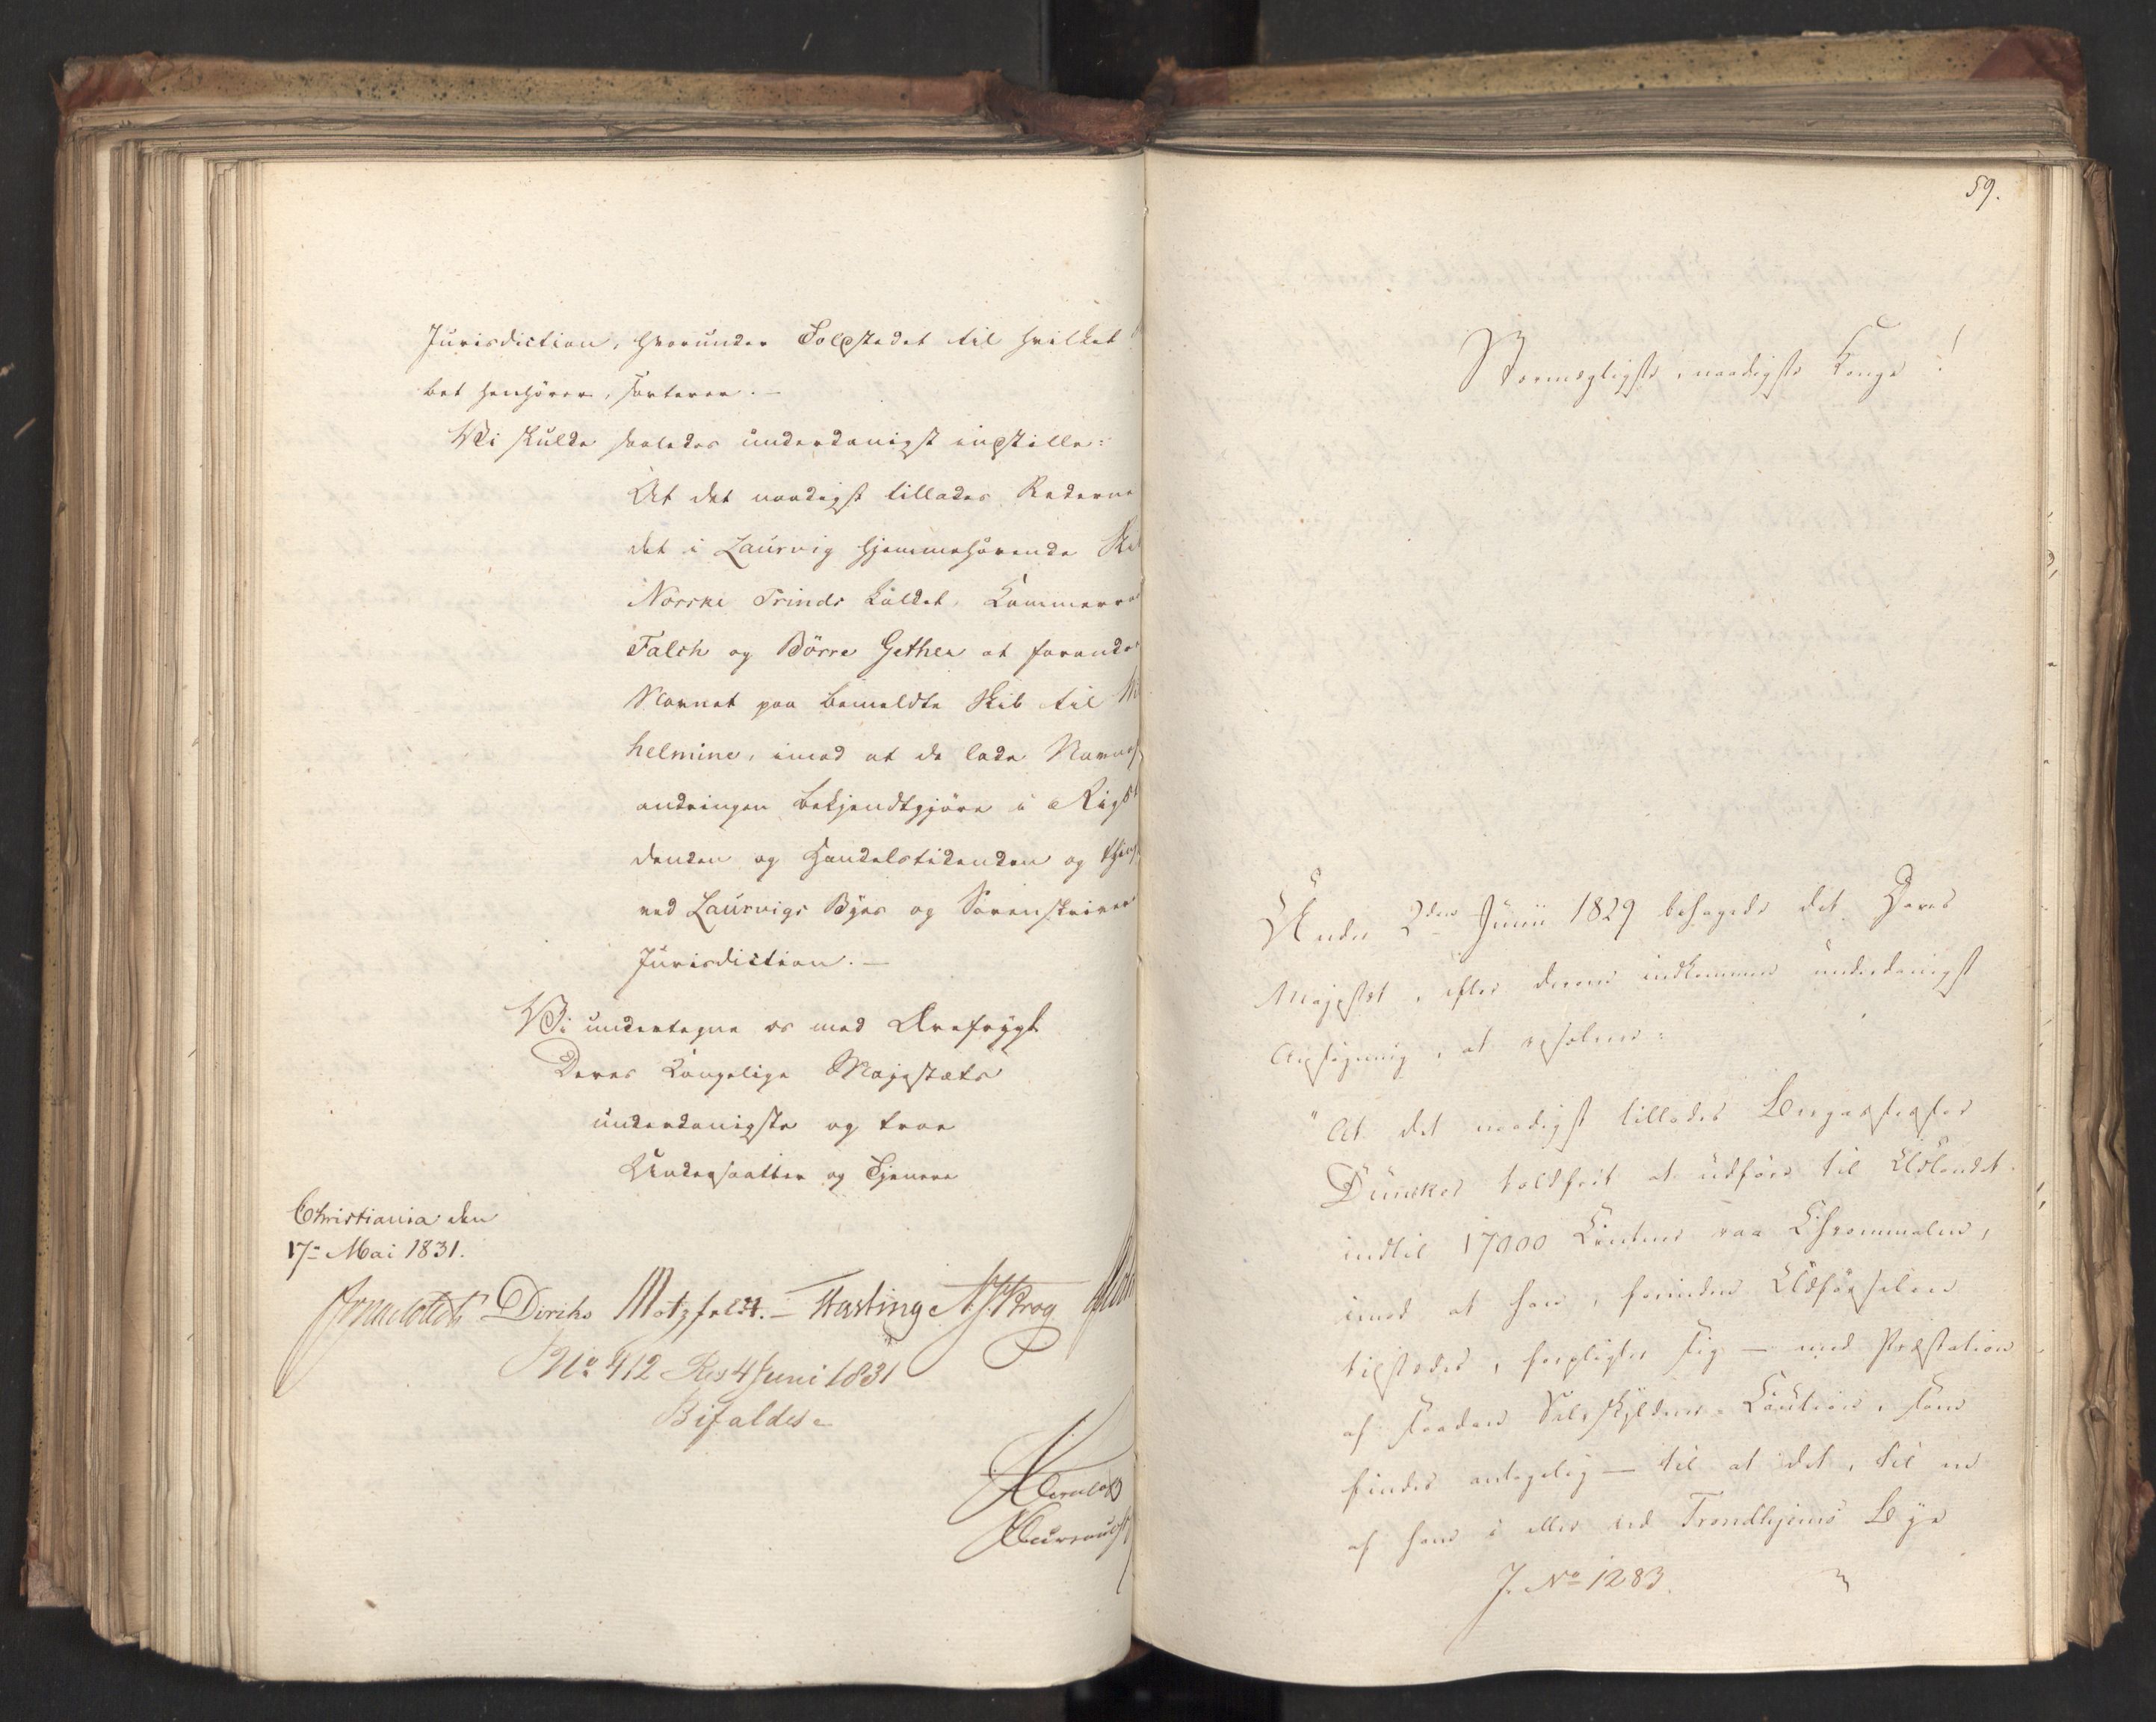 Jurisdiction, hvorunder Toldstedet til hvilket
bet henhörer, sorterer. —
Vi skulde saaledes underdanigst indstille:
At det naadigst tillades Rederne
det i Laurvig hjemmehørende Skib
Norske Prinds kaldet, Kammerraad
Falch og Börre Gether at forandre
Navnet paa bemeldte Skib til Wil
helmine, imod at de lade Navnefor
andringen bekjendtgjöre i Rigsti
denden og Handelstidenden og thing
ved Laurvigs Byes og Sorenskriver
Jurisdiction. —
Vi undertegne os med Ærefrygt
Deres Kongelige Majestæts
underdanigste og troe
Undersaatter og Tjenere
Christiania den
17de Mai 1831.
Diriks Motzfeldt. — Hasting
No 412 Res 4 Juni 1831
Bifaldes
59.
Stormægtigste, naadigste Konge!
Under 2den Junii 1829 behagede det Deres
Majestæt, efter derom indkommen underdanigst
Ansögning, at resolvere:
"At det naadigst tillades Bergassessor
Dunker toldfrit at udföre til Udlandet
indtil 17000 Centner raa Chrommalm,
imod at han, forinden Udførselen
tilstedes, forpligter sig — med Præstation
af saadan Selvskyldner-Caution, som
findes antagelig — til at det, til en
af ham i eller ved Trondhjems Bye
J. No 1283.